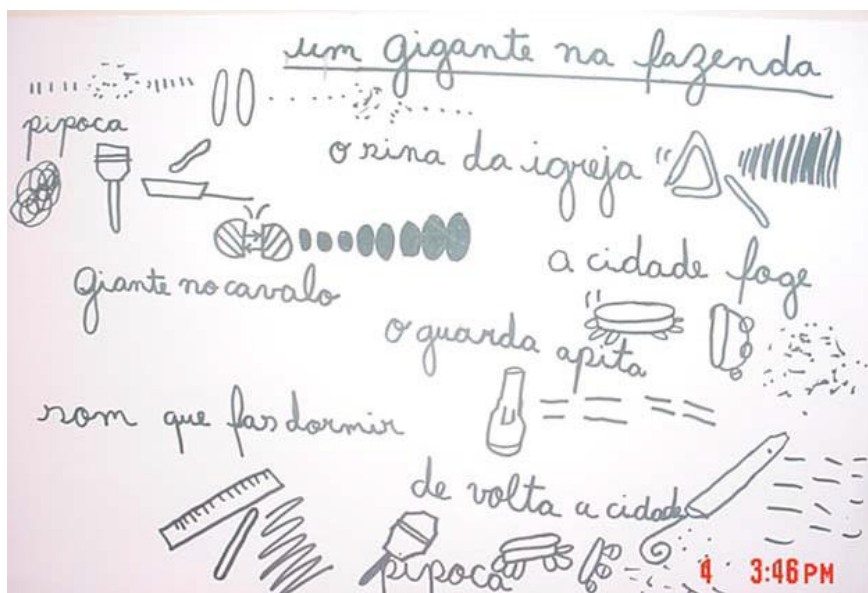 um gigante na fazenda
pipoca
o sina da igreja
a cidade foge
giante no cavalo
o guarda apita
som que fas dormir
de volta a cidade
pipoca
4 3:46 PM